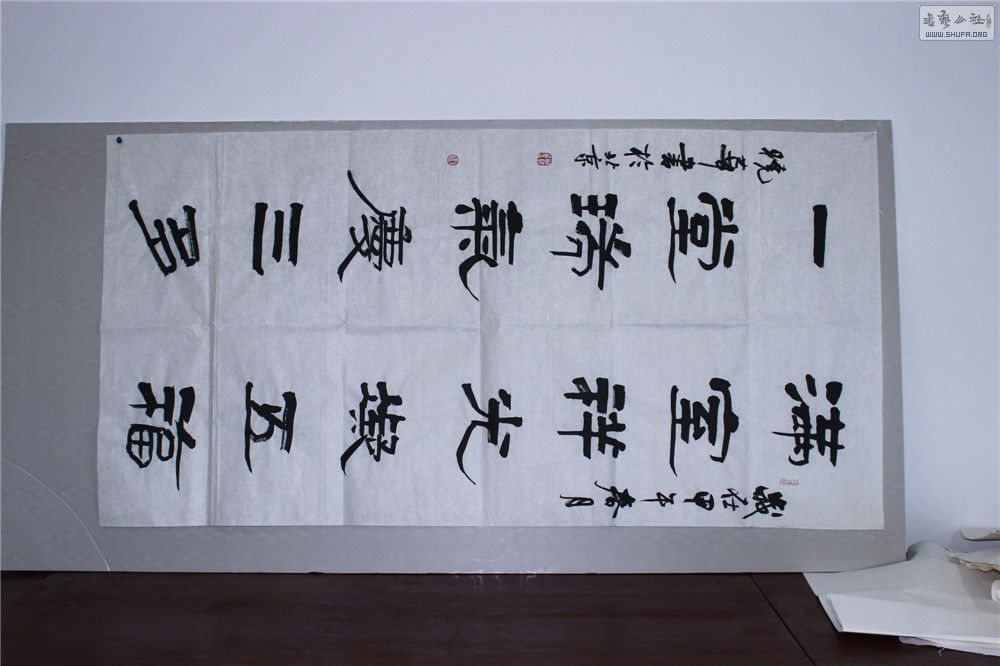 歲在甲午春月
滿室祥光凝五福
一堂瑞氣慶三多
書於北京
書藝公社
WWW.SHUFA.ORG